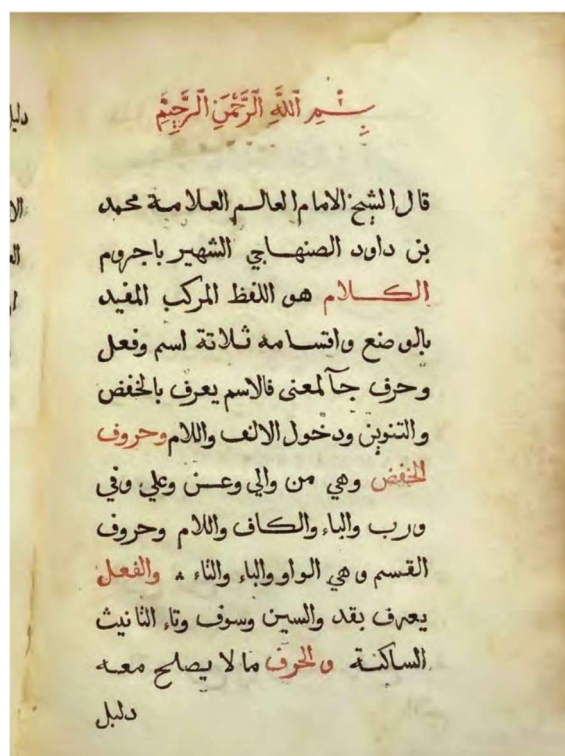 بِسْمِ ٱللَّهِ ٱلرَّحْمَٰنِ ٱلرَّحِيمِ
قال الشيخ الامام العالم العلامة محمد
بن داود الصنهاجي الشهير باجروم
الكلام هو اللفظ المركب المفيد
بالوضع واقسامه ثلاثة اسم وفعل
وحرف جآ لمعنى فالاسم يعرف بالخفض
والتنوين ودخول الالف واللام وحروف
الخفض وهي من والي وعن وعلي وفي
ورب والباء والكاف واللام وحروف
القسم وهي الواو والباء والتاء ؞ والفعل
يعرف بقد والسين وسوف وتاء التانيث
الساكنة والحرف ما لا يصلح معه
دليل